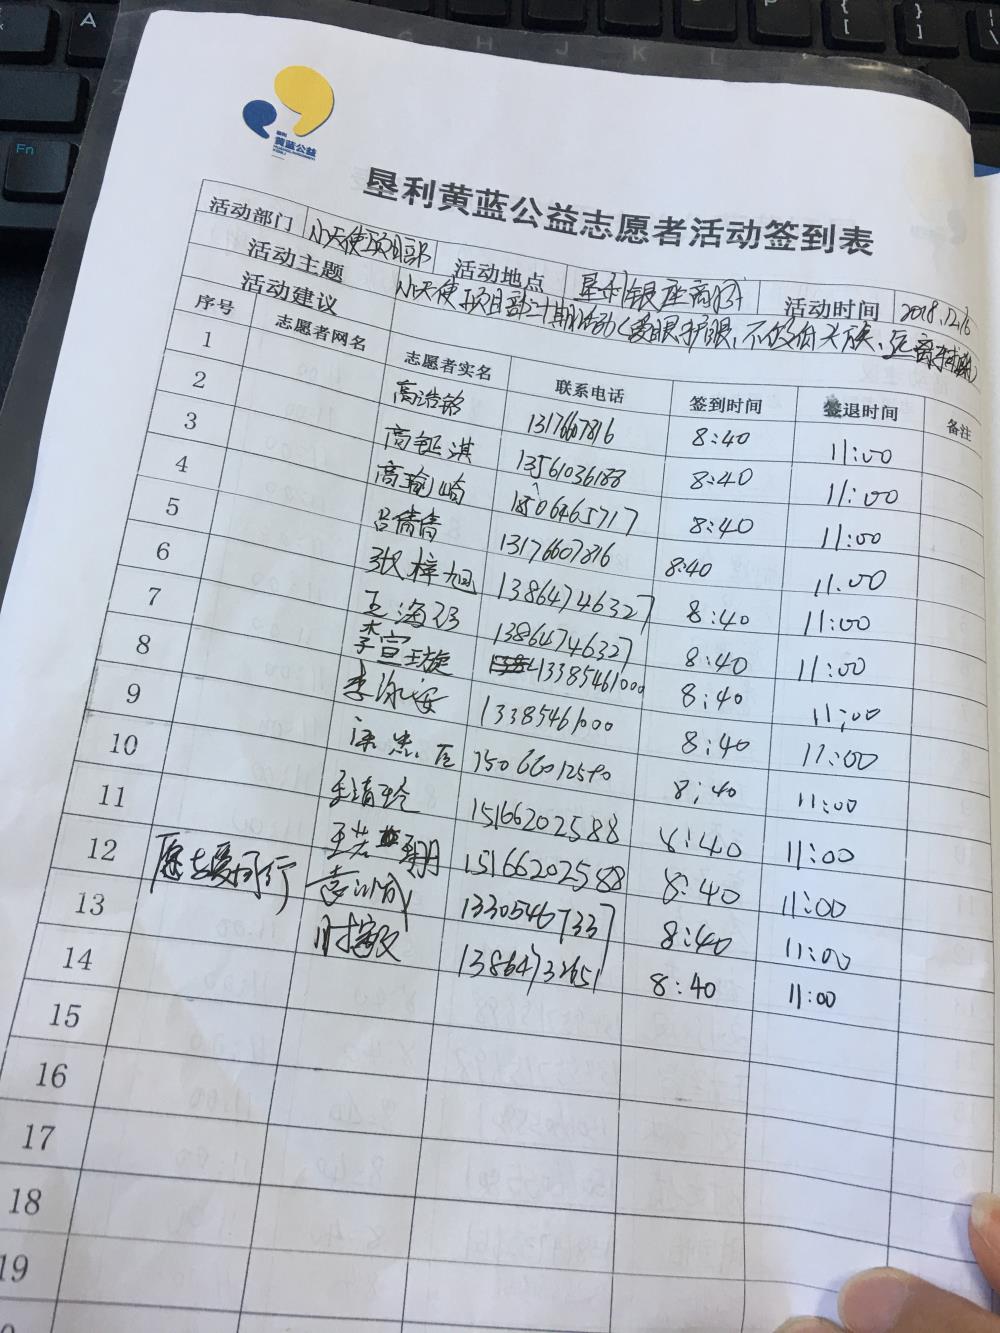 黄蓝公益
垦利黄蓝公益志愿者活动签到表
活动部门 小天使项目部 活动地点 垦利银座商场 活动时间 2018.12.16
活动主题 小天使项目部二十期活动(爱眼护眼、不做低头族、远离手机
活动建议
序号 志愿者网名 志愿者实名 联系电话 签到时间 签退时间 备注
1 高浩铭 1317667816 8:40 11:00
2 高钰淇 13561036188 8:40 11:00
3 高瑜崎 18506465717 8:40 11:00
4 吕倩倩 13176607816 8:40 11:00
5 张梓旭 13864746327 8:40 11:00
6 王海 13864746327 8:40 11:00
7 李宣璇 13385461000 8:40 11:00
8 李 安 13385461000 8:40 11:00
9 8:40 11:00
10 王清玲 15166202588 8:40 11:00
11 王若 15166202588 8:40 11:00
12 13305467337 8:40 11:00
13 13864732651 8:40 11:00
14
15
16
17
18
19
Fn
A
G
H
J
K
L
Z
P
{
[
}
]